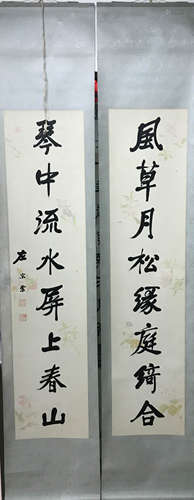 風草月松緣庭綺合
琴中流水屏上春山
左宗棠